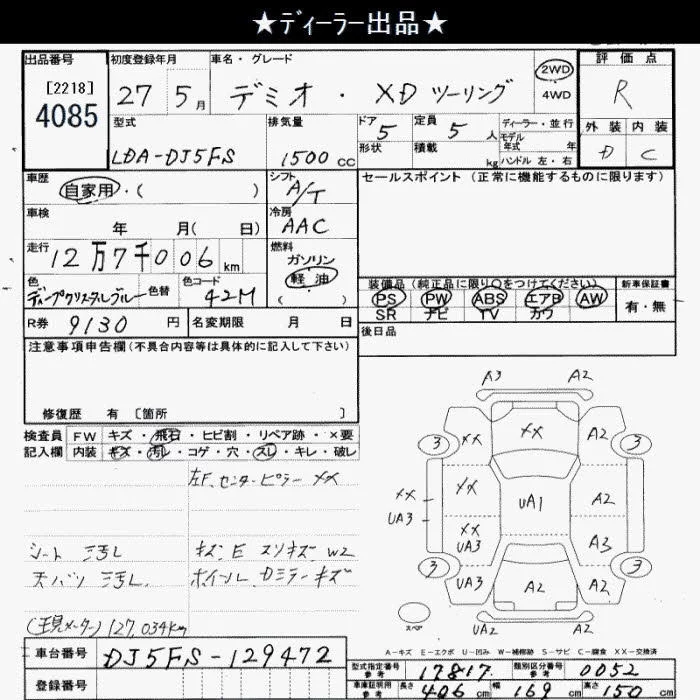 ★ディーラー出品★
出品番号
[2218]
4085
初度登録年月
27 5月
車名・グレード
デミオ・XD ツーリング
2WD
4WD
評価点
R
外装 内装
D C
型式
LDA-DJ5FS
排気量
1500cc
ドア
5
定員
5人
形状
積載
kg
ディーラー・並行
モデル年式 年
ハンドル 左・右
車歴
自家用・( )
シフト
A/T
セールスポイント (正常に機能するものに限ります)
車検
年 月( 日)
冷房
AAC
走行
12万7千006km
燃料
ガソリン
軽油
( )
色
ディープクリスタルブルー
色替
色コード
42M
装備品 (純正品に限り○をつけてください)
PS PW ABS エアB AW
SR ナビ TV カワ
新車保証書
有・無
R券 9130円
名変期限 月 日
後日品
注意事項申告欄(不具合内容等は具体的に記入して下さい)
修復歴 有 [箇所 ]
検査員記入欄
FW キズ・飛石・ヒビ割・リペア跡・×要
内装 キズ・汚レ・コゲ・穴・スレ・キレ・破レ
左F,センターピラー XX
シート 汚レ
キズ・E スリキズ W2
天バリ 汚レ.
ホイール,Dミラーキズ
(現メーター)127,034km
A3 A2
3 XX XX A2 3
XX XX UA1 A2
UA3
XX
UA3 A3
3 UA3 A2 A2 3
スペア
UA2 A2
A-キズ E-エクボ U-凹み W-補修跡 S-サビ C-腐食 XX-交換済
車台番号 DJ5FS-129472
登録番号
型式指定番号 参考 17817
類別区分番号 参考 0052
車庫証明用 参考 長さ 406cm 幅 169cm 高さ 150cm